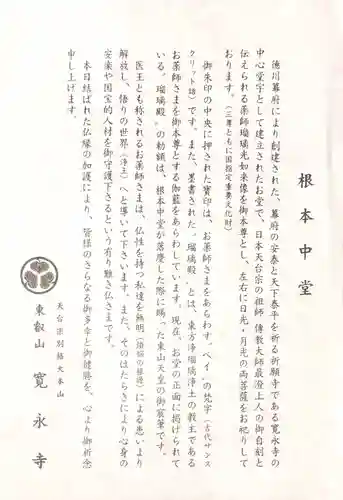 根本中堂
徳川幕府により創建された、幕府の安泰と天下泰平を祈る祈願寺である寛永寺の
中心堂宇として建立されたお堂で、日本天台宗の祖師 傳教大師最澄上人の御自刻と
伝えられる薬師瑠璃光如来像を御本尊とし、左右に日光・月光の両菩薩をお祀りして
おります。（三尊ともに国指定重要文化財）
御朱印の中央に押された寶印は、お薬師さまをあらわす、"ベイ"の梵字（古代サンス
クリット語）です。また、墨書された"瑠璃殿"とは、東方浄瑠璃浄土の教主である
お薬師さまを御本尊とする伽藍をあらわしています。現在、お堂の正面に掲げられて
いる"瑠璃殿"の勅額は、根本中堂が落慶した際に賜った東山天皇の御宸筆です。
医王とも称されるお薬師さまは、仏性を持つ私達を無明（煩悩の根源）による患いより
解放し、悟りの世界（浄土）へと導いて下さいます。また、そのはたらきにより心身の
安楽や国宝的人材を御守護下さるという有り難き仏さまです。
本日結ばれた仏縁の加護により、皆様のさらなる御多幸と御健勝を、心より御祈念
申し上げます。
天台宗別格大本山
東叡山 寛永寺